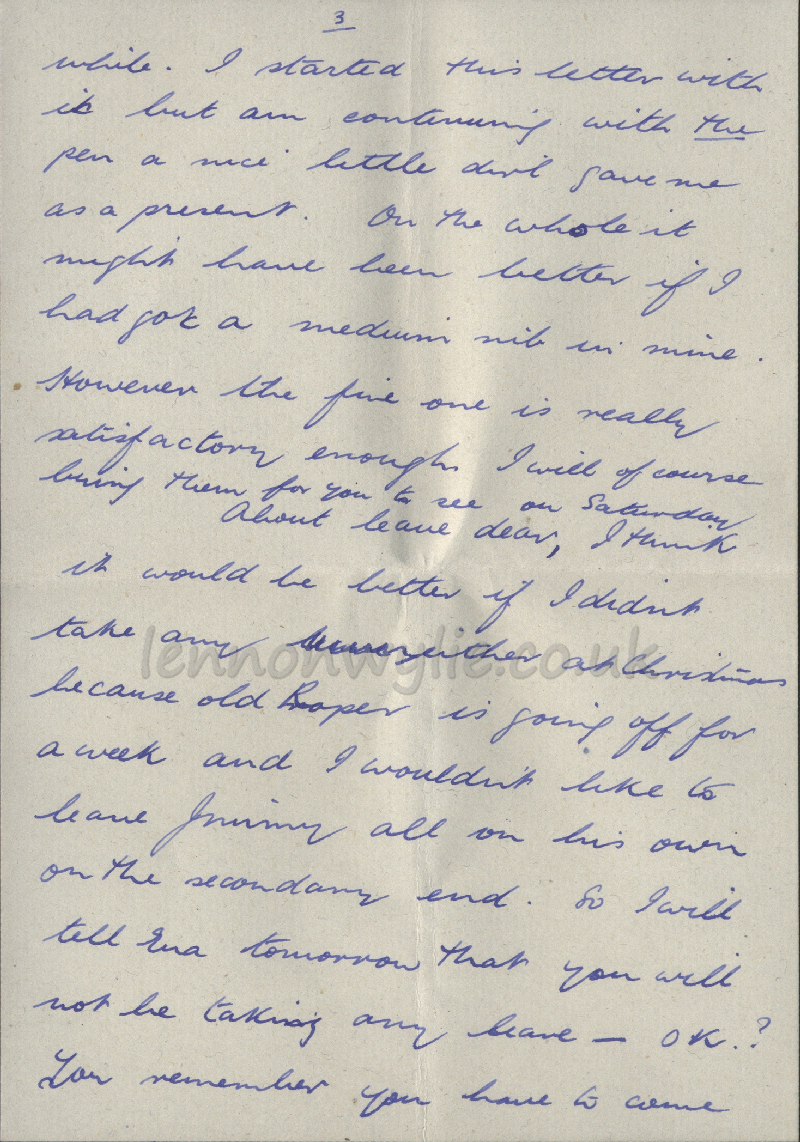 3
while. I started this letter with
it but am continuing with the
pen a nice little devil gave me
as a present. On the whole it
might have been better if I
had got a medium nib in mine.
However the fine one is really
satisfactory enough. I will of course
bring them for you to see on Saturday
About leave dear, I think
it would be better if I didn't
take any either at Christmas
because old Roper is going off for
a week and I wouldn't like to
leave Jimmy all on his own
on the secondary end. So I will
tell Ena tomorrow that you will
not be taking any leave — OK.?
You remember you have to come
lennonwylie.co.uk